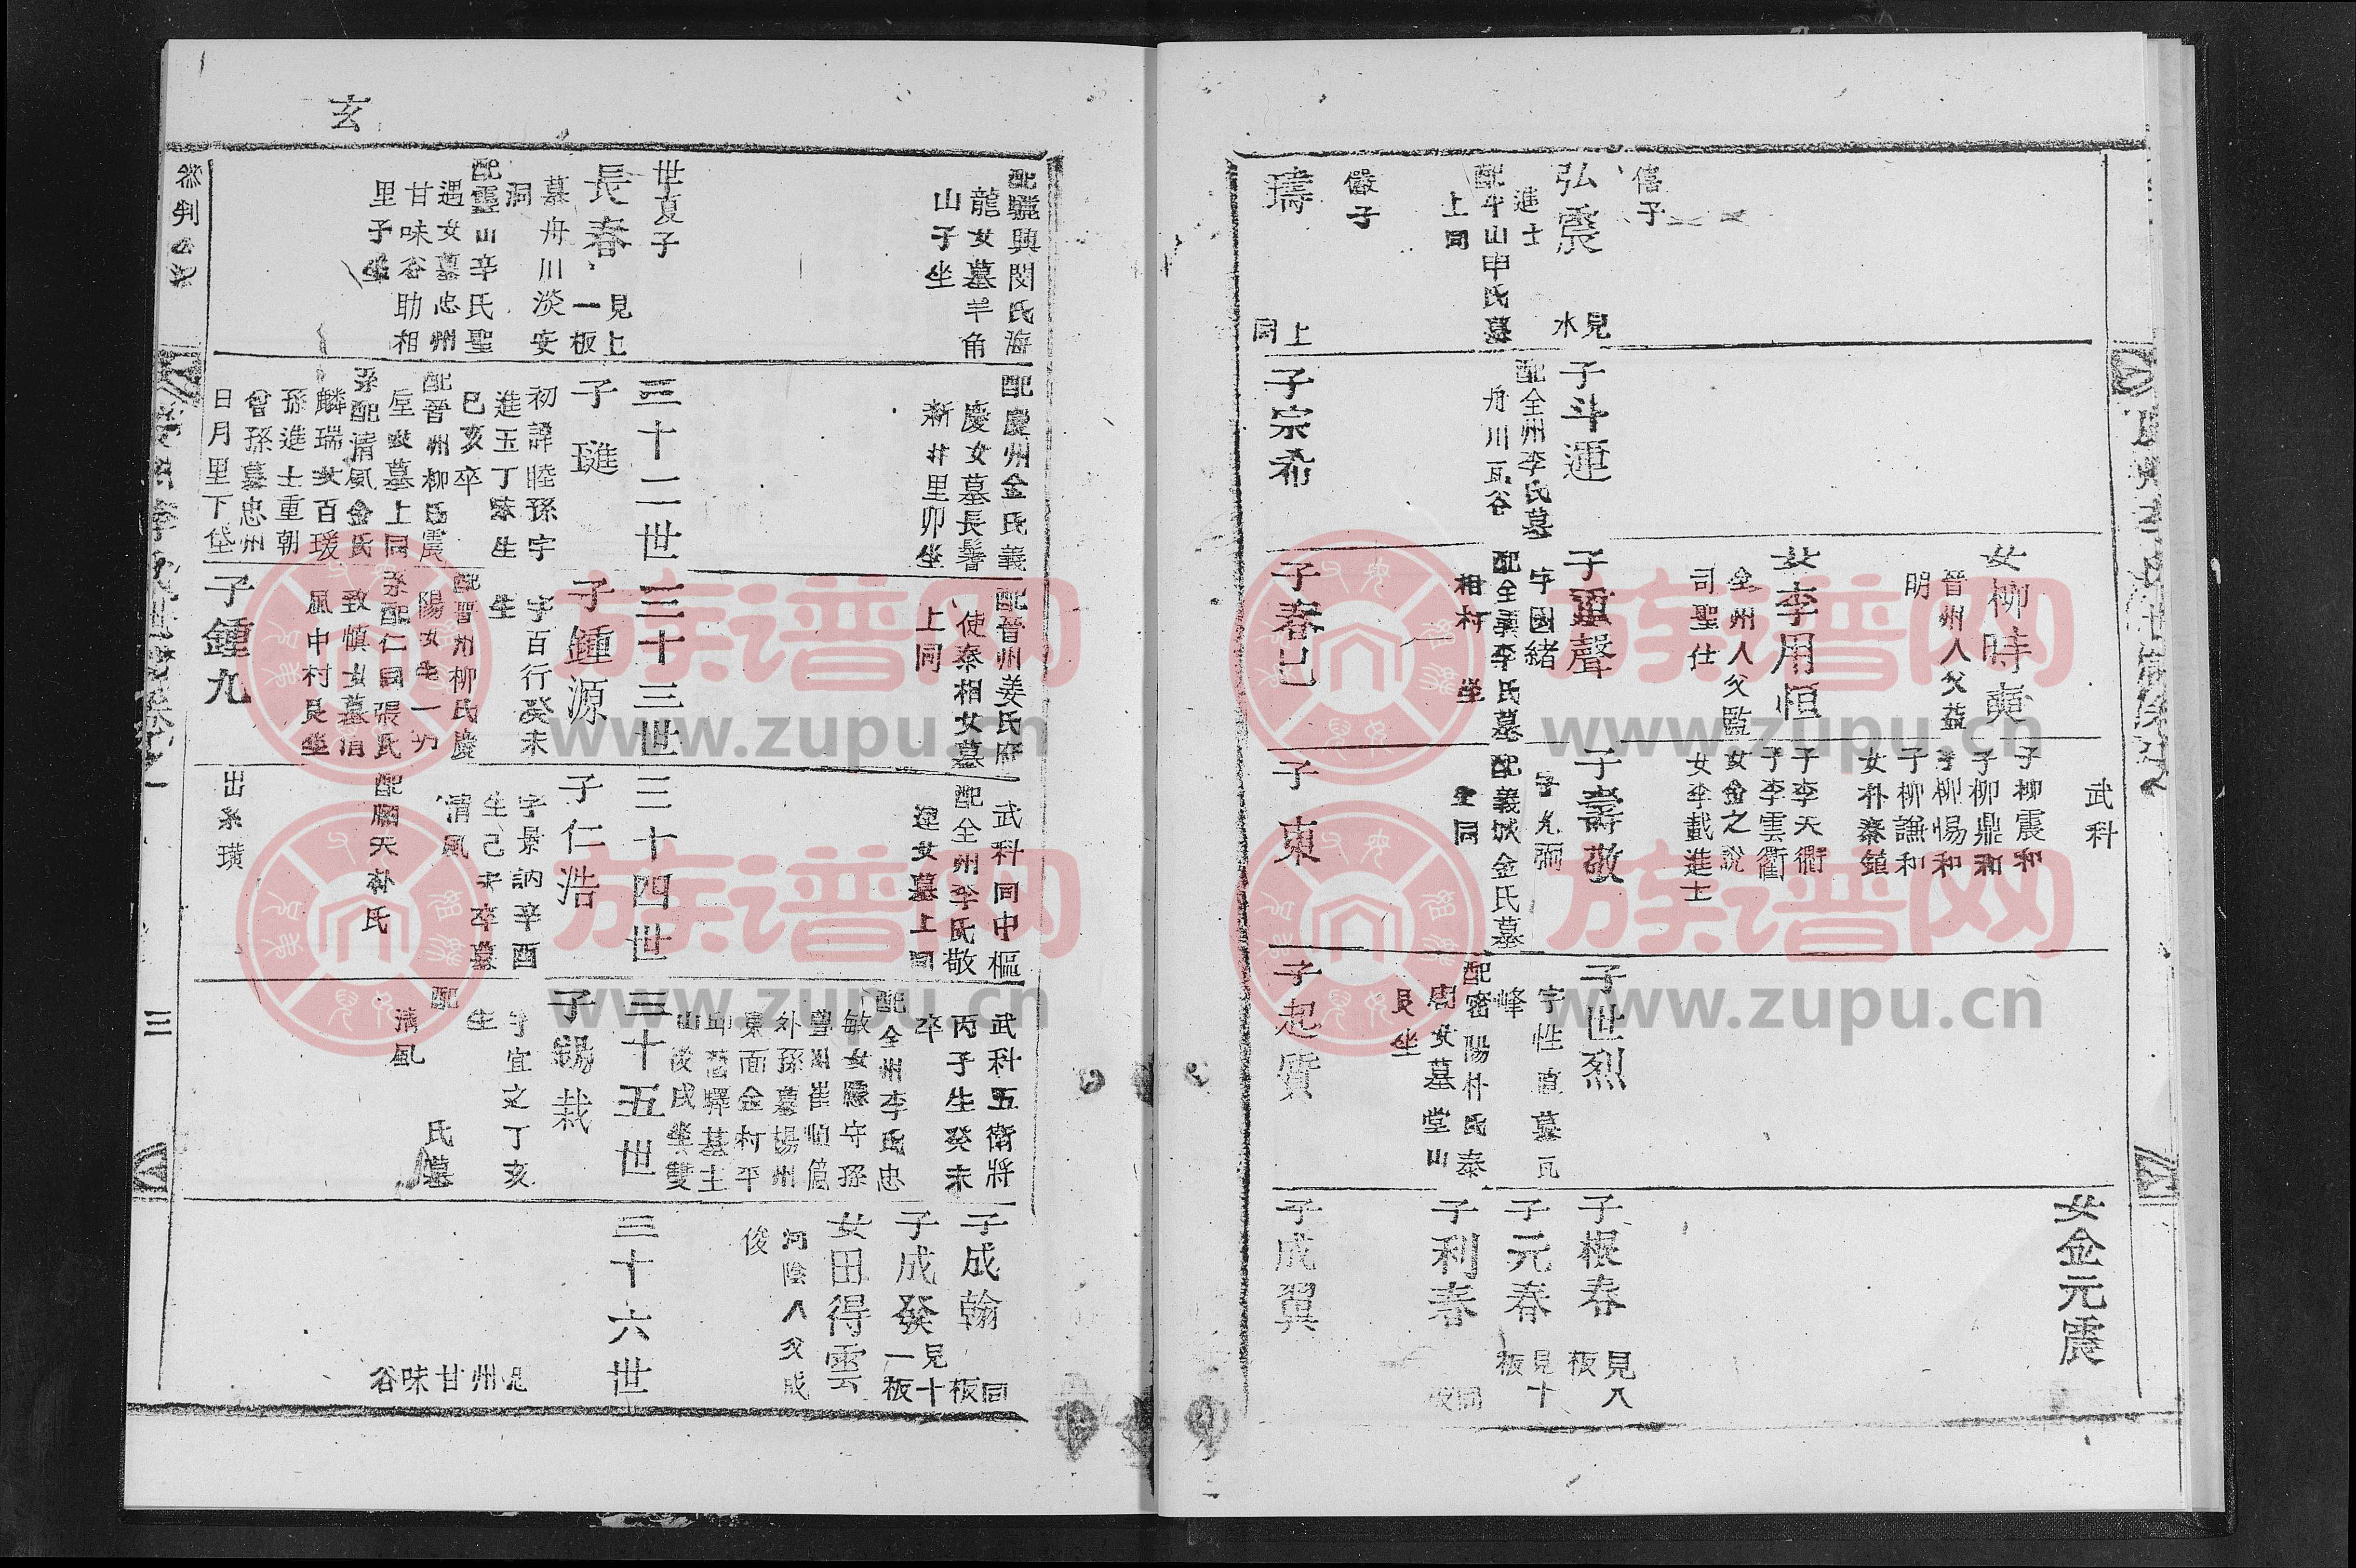 武科
女金元震
女柳時奭
晉州人父益
明
子柳震和
子柳鼎和
子柳惕和
子柳謙和
女朴泰鎮
女李用恒
全州人父監
司聖仕
子李天衢
子李雲衢
女金之說
女李載進士
僖子
弘震
見
水
進士
配平山申氏墓
上同
子斗運
配全州李氏墓
舟川瓦谷
子重聲
字國緒
配全義李氏墓
相村
坐
子壽敬
字允彌
配義城金氏墓
上同
子世烈
字性直墓瓦
峰
配密陽朴氏泰
周女墓堂山
艮坐
子根春
見八
板
子元春
見十
板
子利春
同
板
儼子
璹
上
同
子宗希
子春巳
子東
子起質
子成翼
配驪興閔氏海
龍女墓羊角
山子坐
配慶州金氏義
慶女墓長髻
新井里卯坐
配晉州姜氏府
使秦相女墓
上同
武科同中樞
配全州李氏敬
迎女墓上同
武科五衛將
丙子生癸未
卒
配全州李氏忠
敏女縣守孫
外孫墓楊州
東面金村平
丘舊驛基主
山後戌坐雙
子成翰
同
板
子成發
見十
一板
女田得雲
河陰人父成
俊
世夏子
三十二世
三十三世
三十四世
三十五世
三十六世
長春
見上
一板
墓舟川淡安
洞
配靈山辛氏聖
遇女墓忠州
甘味谷助相
里子坐
子璡
初諱睦孫字
進玉丁未生
巳亥卒
配晉州柳氏震
垕女墓上同
系配清風金氏
麟瑞女百瑗
孫進士重朝
曾孫墓忠州
日月里下垈
子鍾源
字百行癸未
生
配晉州柳氏慶
系配仁同張氏
致慎女墓清
風中村艮坐
子仁浩
字景訥辛酉
生己卒墓
清風
配順天朴氏
子錫栽
字宜之丁亥
生
配
氏墓
清風
忠州甘味谷
子鍾九
出系璜
玄
三
族谱网
www.zupu.cn
族谱网
www.zupu.cn
族谱网
www.zupu.cn
族谱网
www.zupu.cn